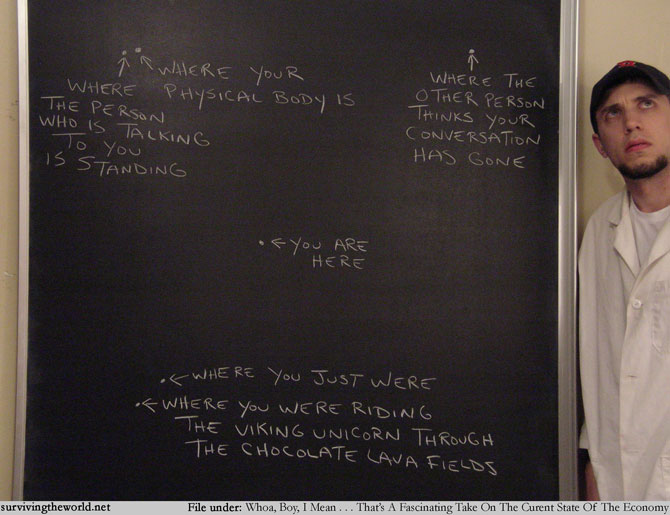 WHERE YOUR
PHYSICAL BODY IS
WHERE
THE PERSON
WHO IS TALKING
TO YOU
IS STANDING
WHERE THE
OTHER PERSON
THINKS YOUR
CONVERSATION
HAS GONE
YOU ARE
HERE
WHERE YOU JUST WERE
WHERE YOU WERE RIDING
THE VIKING UNICORN THROUGH
THE CHOCOLATE LAVA FIELDS
survivingtheworld.net
File under: Whoa, Boy, I Mean . . . That's A Fascinating Take On The Curent State Of The Economy